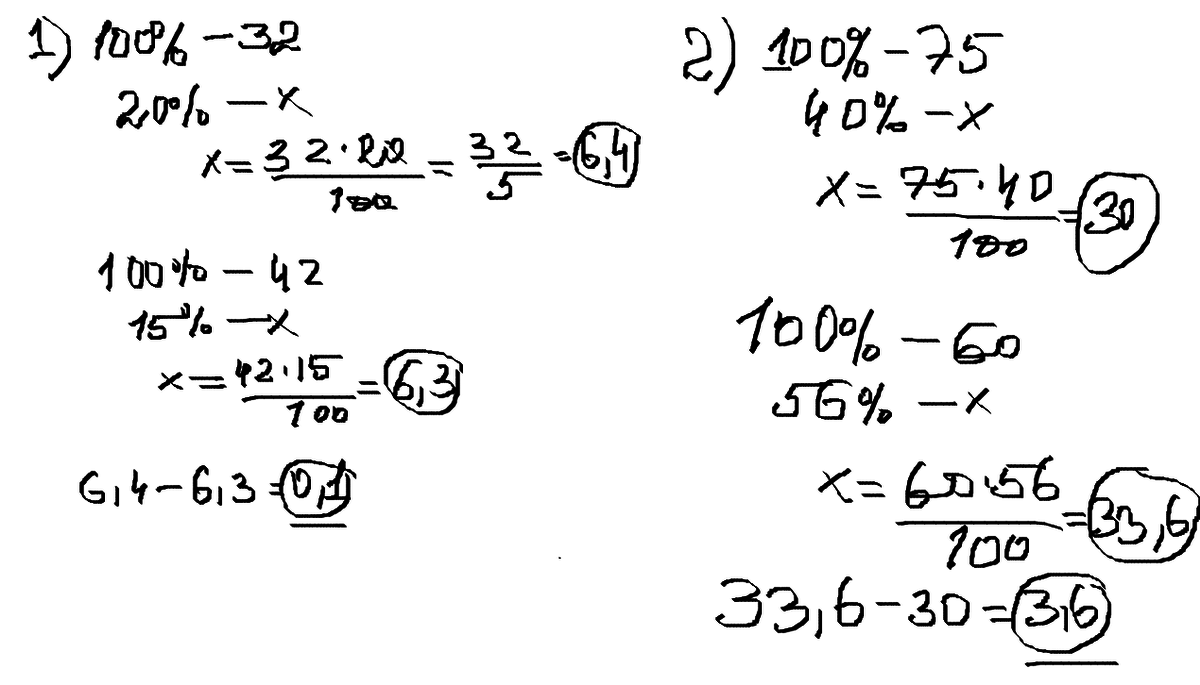 1) 100% - 32
20% - x
x = 32·20/100 = 32/5 = 6,4
100% - 42
15% - x
x = 42·15/100 = 6,3
6,4 - 6,3 = 0,1
2) 100% - 75
40% - x
x = 75·40/100 = 30
100% - 60
56% - x
x = 60·56/100 = 33,6
33,6 - 30 = 3,6